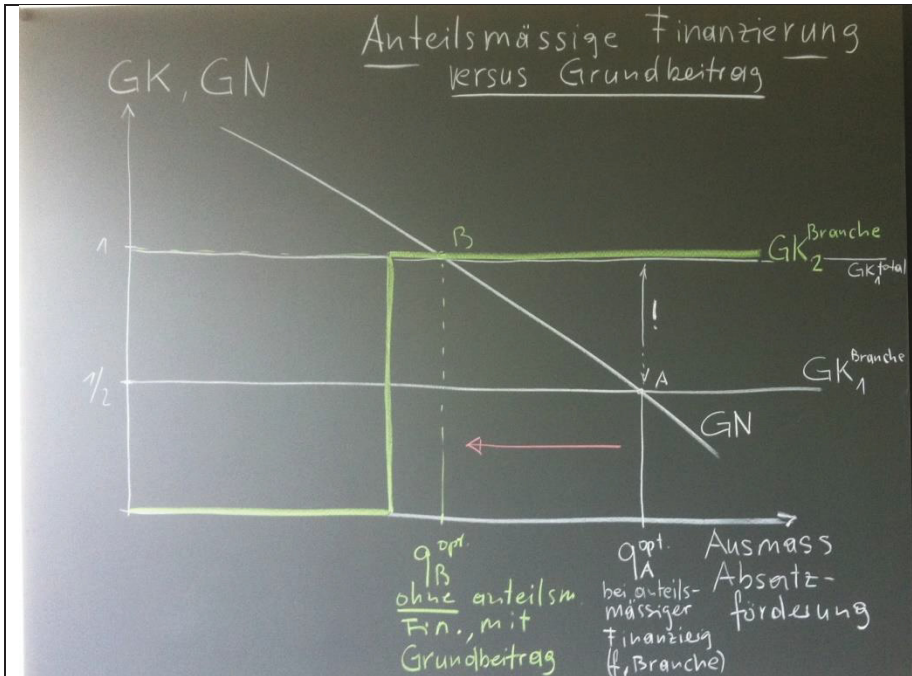 Anteilsmässige Finanzierung
versus Grundbeitrag
GK, GN
1
B
GK₂^Branche
GK₁^total
!
1/2
A
GK₁^Branche
GN
q_B^opt.
ohne anteilsm
Fin., mit
Grundbeitrag
q_A^opt.
bei anteils-
mässiger
Finanzierg
(f, Branche)
Ausmass
Absatz-
förderung